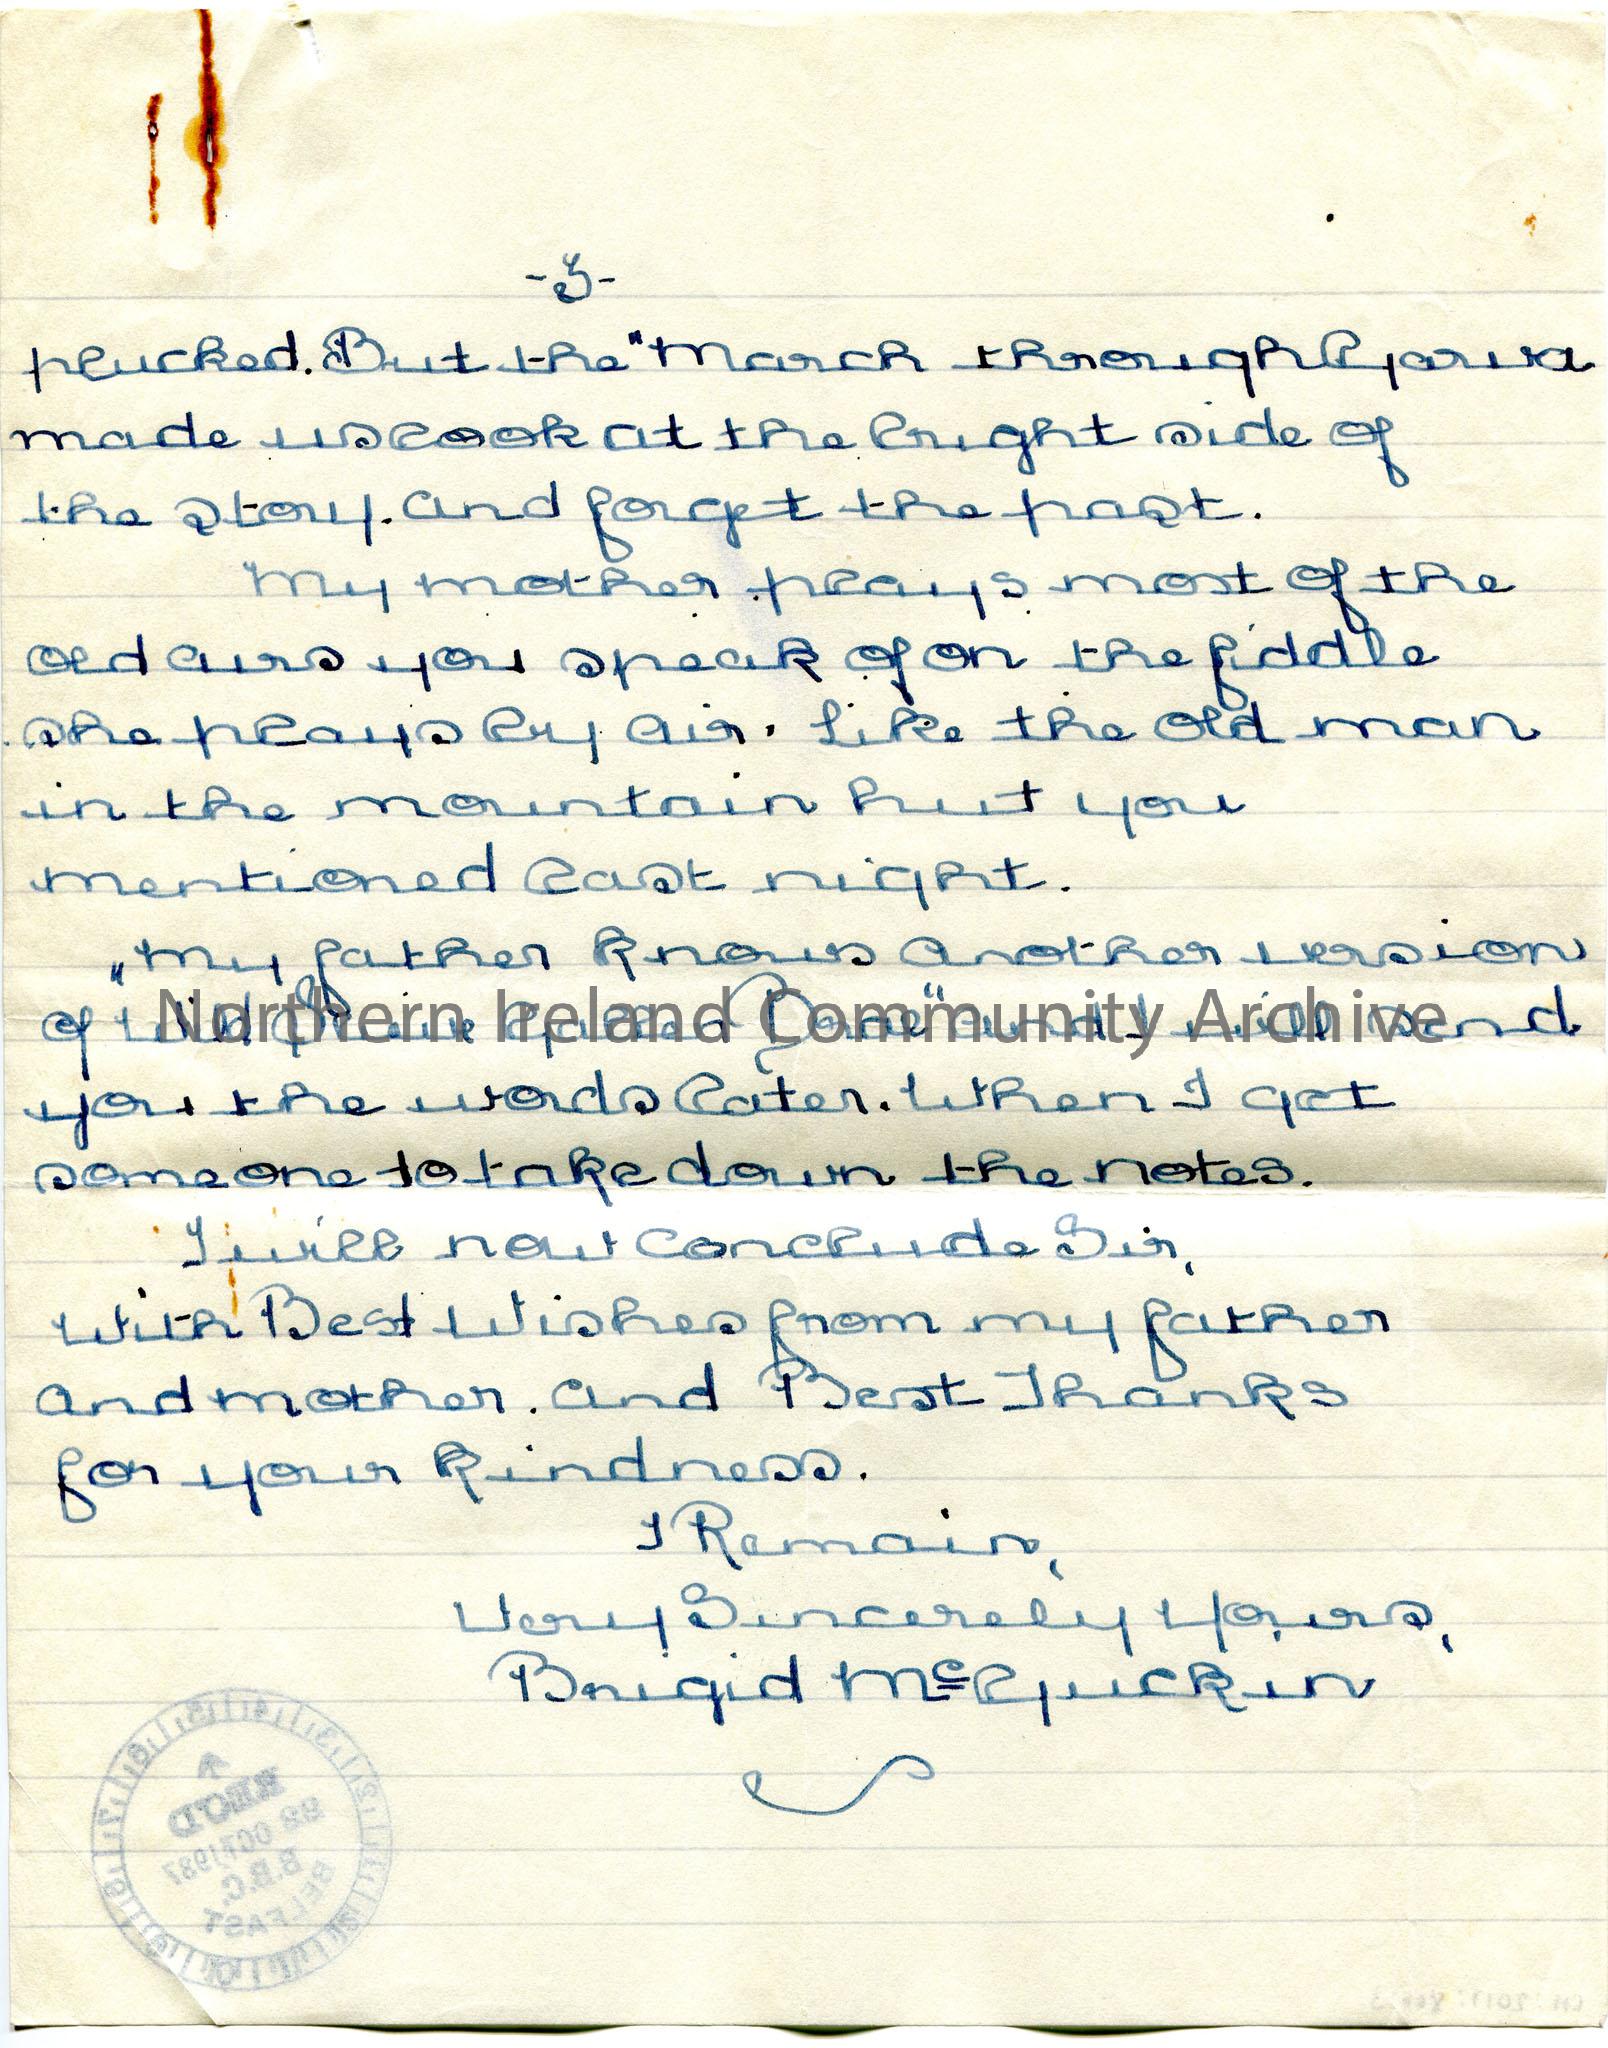 -3-
plucked. But the "March through Garva
made us look at the bright side of
the story. and forget the past.
My mother plays most of the
old airs you speak of on the fiddle
she plays by air. Like the old man
in the mountain hut you
mentioned last night.
"My father knows another version
of Willie Gallea and I will send
Northern Ireland Community Archive
you the words later. When I get
someone to take down the notes.
I will now conclude Sir,
With Best Wishes from my father
and mother. and Best Thanks
for your kindness.
I Remain,
Very Sincerely Yours,
Brigid McGuckin
REC'D
OCT 1937
B.B.C.
BELFAST